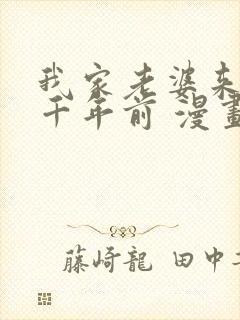 我家老婆来
千年前 漫畫
藤崎龍 田中